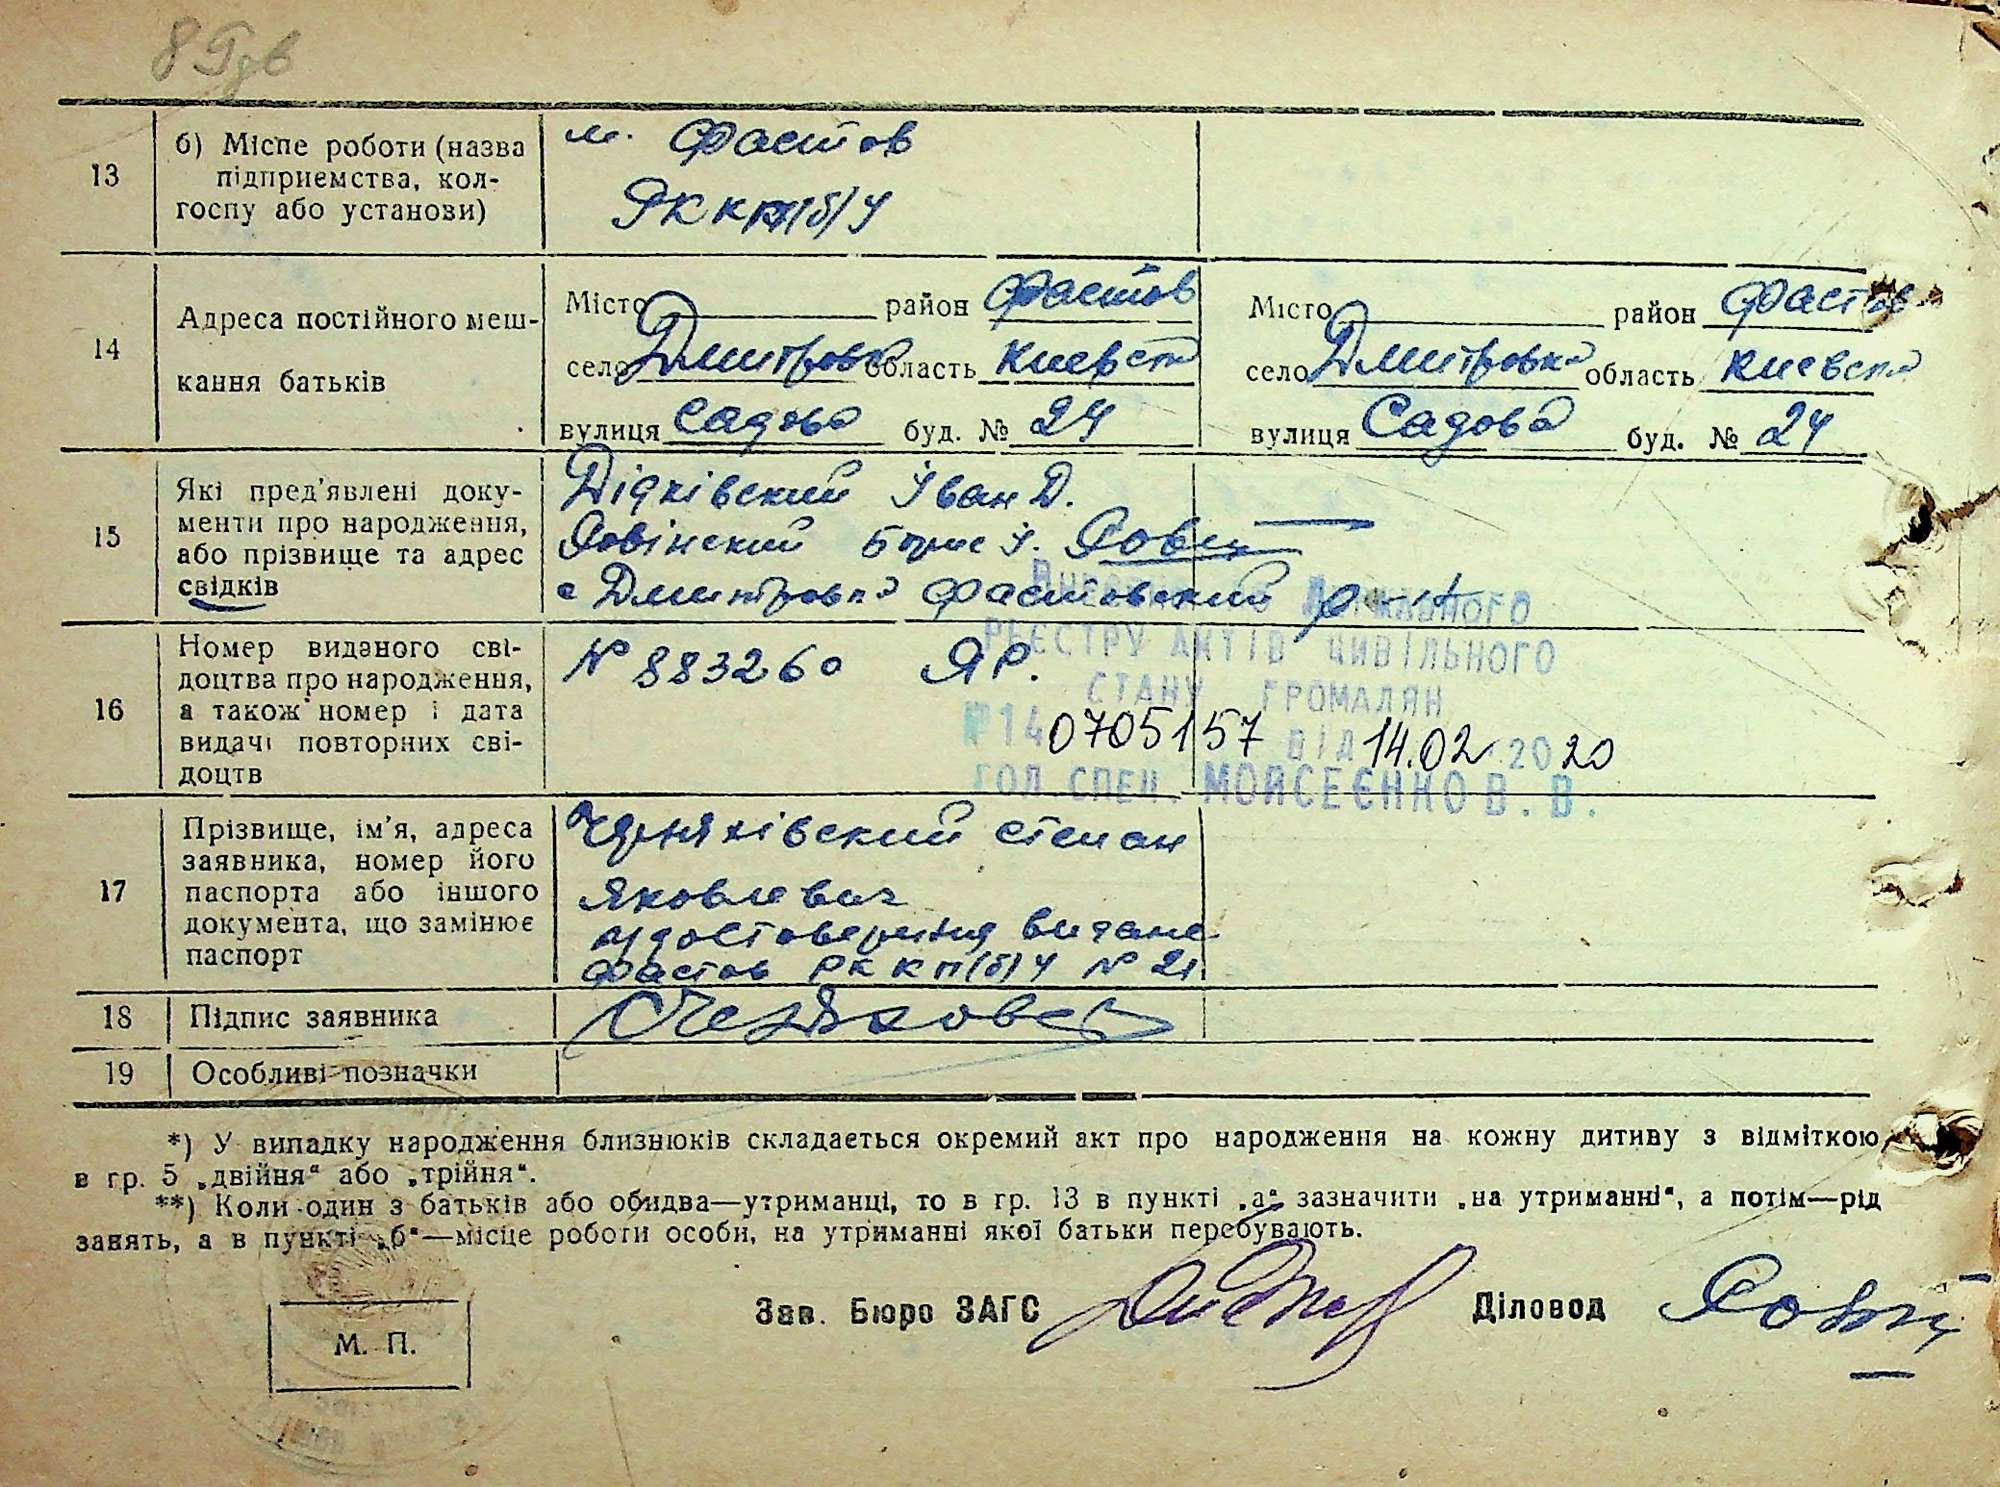 13
б) Місце роботи (назва
підприємства, кол-
госпу або установи)
м. Фастов
РК КП(б)У
14
Адреса постійного меш-
кання батьків
Місто район Фастов
село Дмитровка область Киевск
вулиця Садова буд. № 24
Місто район Фастов
село Дмитровка область Киевск
вулиця Садова буд. № 24
15
Які пред'явлені доку-
менти про народження,
або прізвище та адрес
свідків
Дідківський Іван Д.
Борис І.
с Дмитровка Фастовский р-н
16
Номер виданого сві-
доцтва про народження,
а також номер і дата
видачі повторних сві-
доцтв
№ 883260 ЯР.
Державного
реєстру актів цивільного
стану громадян
№ 140705157 від 14.02 2020
гол. спец. Мойсеєнко В. В.
17
Прізвище, ім'я, адреса
заявника, номер його
паспорта або іншого
документа, що замінює
паспорт
Черняхівський Степан
Яковлевич
удостоверения видане
Фастов РК КП(б)У № 21
18
Підпис заявника
19
Особливі позначки
*) У випадку народження близнюків складається окремий акт про народження на кожну дитину з відміткою
в гр. 5 „двійня“ або „трійня“.
**) Коли один з батьків або обидва—утриманці, то в гр. 13 в пункті „а“ зазначити „на утриманні“, а потім—рід
занять, а в пункті „б“—місце роботи особи, на утриманні якої батьки перебувають.
Зав. Бюро ЗАГС
Діловод
М. П.